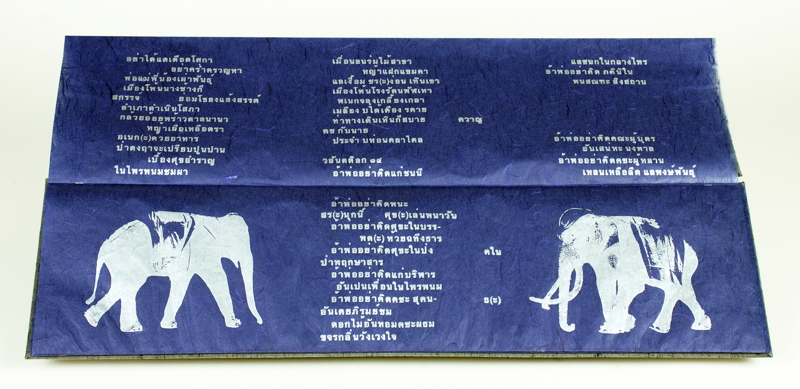 อย่าได้แดเดือดโศกา
อยาคร่ำครวญหา
พ่อแม่พี่น้องเผ่าพันธุ์
เมืองโพนนางช้างกี
สกรรจ์ ย่อมโขลงแล้งสรรค์
ลำเภาดำเนินโสภา
กล้วยอ้อยพร้าวตาลนานา
หญ้าเผือเหลือตรา
อเนก(ะ)ด้วยอาหาร
ป่าดงฤๅจะเปรียบปูนปาน
เบื้องศุขสำราญ
ในไพรพนมชมผา
เมื่อนอนร่มไม้สาขา
หญ้าแฝกแขมคา
แลเงื้อม ชร(ะ)งอน เทินเขา
เมืองโพนโรงรัตนพัพเทา
พเนกจลุงเกลี้ยงเกลา
เหลือง บใดเคือง รคาย
ท่าทางเดินเพินก็สบาย ควาญ
คช กับนาย
ประจำ บห่อนคลาไคล
วสันตดิลก ๑๔
อ้าพ่ออย่าคิดแก่ชนนี
แลชนกในกลางไพร
อ้าพ่ออย่าคิด ภคินีใน
พนสณฑะ สิงสถาน
อ้าพ่ออย่าคิดคณะผู้บุตร
อันเสนหะ นงพาล
อ้าพ่ออย่าคิดคชะผู้หลาน
เหลนเหลือลืด แลพงษ์พันธุ์
อ้าพ่ออย่าคิดพนะ
สร(ะ)นุกนี้ ศุข(ะ)เล่นพนาวัน
อ้าพ่ออย่าคิดศุขะในบรร-
พต(ะ) ห้วยฉทึงธาร
อ้าพ่ออย่าคิดศุขะในปง ดใน
ป่าพฤกษาสาร
อ้าพ่ออย่าคิดแก่บริพาร
อันเปนเพื่อนในไพรพนม
อ้าพ่ออย่าคิดคชะ สุคน- ธ(ะ)
อันเคยภิรมย์ชม
ดอกไม้อันหอมคชะผธม
ขจรกลิ่นวังเวงใจ